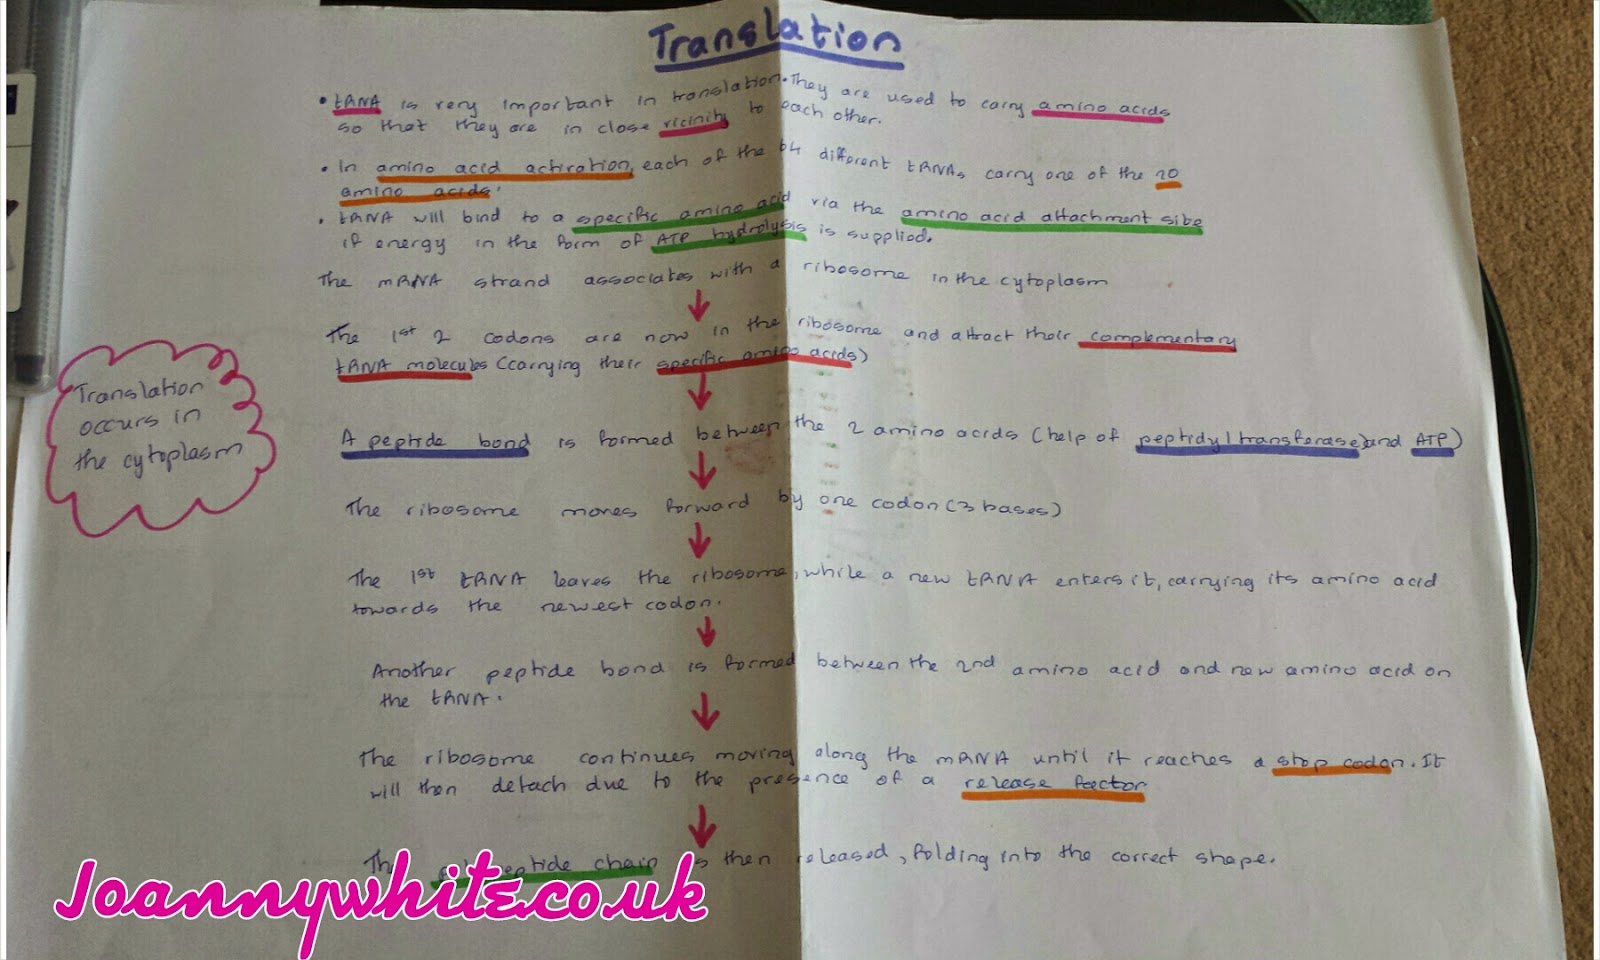 Translation
• tRNA is very important in translation. They are used to carry amino acids
so that they are in close vicinity to each other.
• In amino acid activation, each of the 64 different tRNAs carry one of the 20
amino acids.
• tRNA will bind to a specific amino acid via the amino acid attachment site
if energy in the form of ATP hydrolysis is supplied.
The mRNA strand associates with a ribosome in the cytoplasm
The 1st 2 codons are now in the ribosome and attract their complementary
tRNA molecules (carrying their specific amino acids)
Translation
occurs in
the cytoplasm
A peptide bond is formed between the 2 amino acids (help of peptidyltransferase) and ATP)
The ribosome moves forward by one codon (3 bases)
The 1st tRNA leaves the ribosome, while a new tRNA enters it, carrying its amino acid
towards the newest codon.
Another peptide bond is formed between the 2nd amino acid and new amino acid on
the tRNA.
The ribosome continues moving along the mRNA until it reaches a stop codon. It
will then detach due to the presence of a release factor
The polypeptide chain is then released, folding into the correct shape.
Joannywhite.co.uk